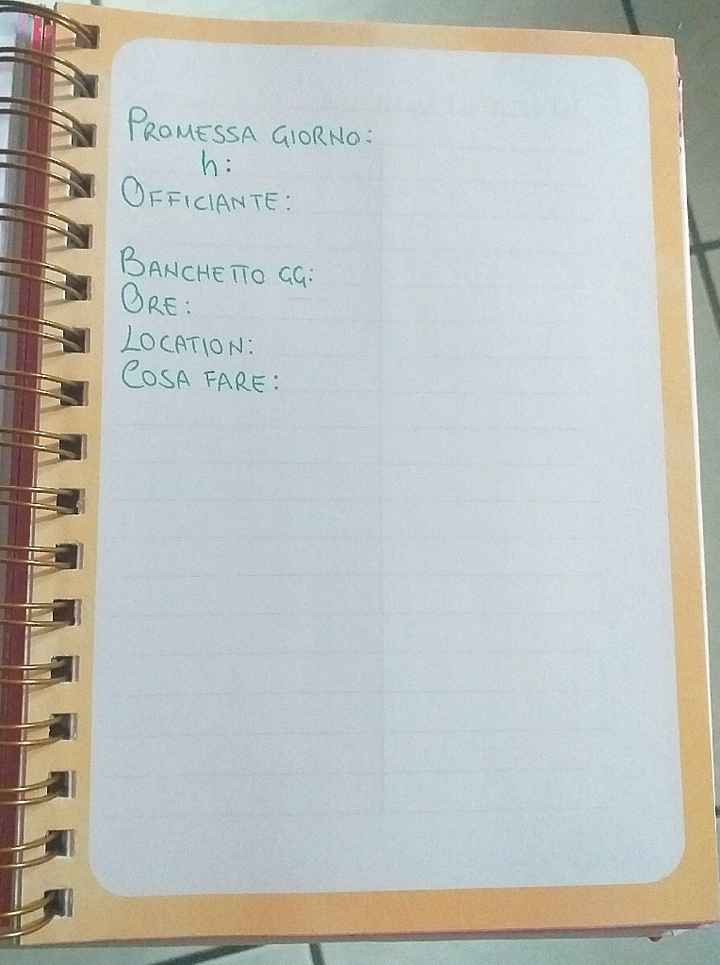 PROMESSA GIORNO:
h:
OFFICIANTE:
BANCHETTO GG:
ORE:
LOCATION:
COSA FARE: